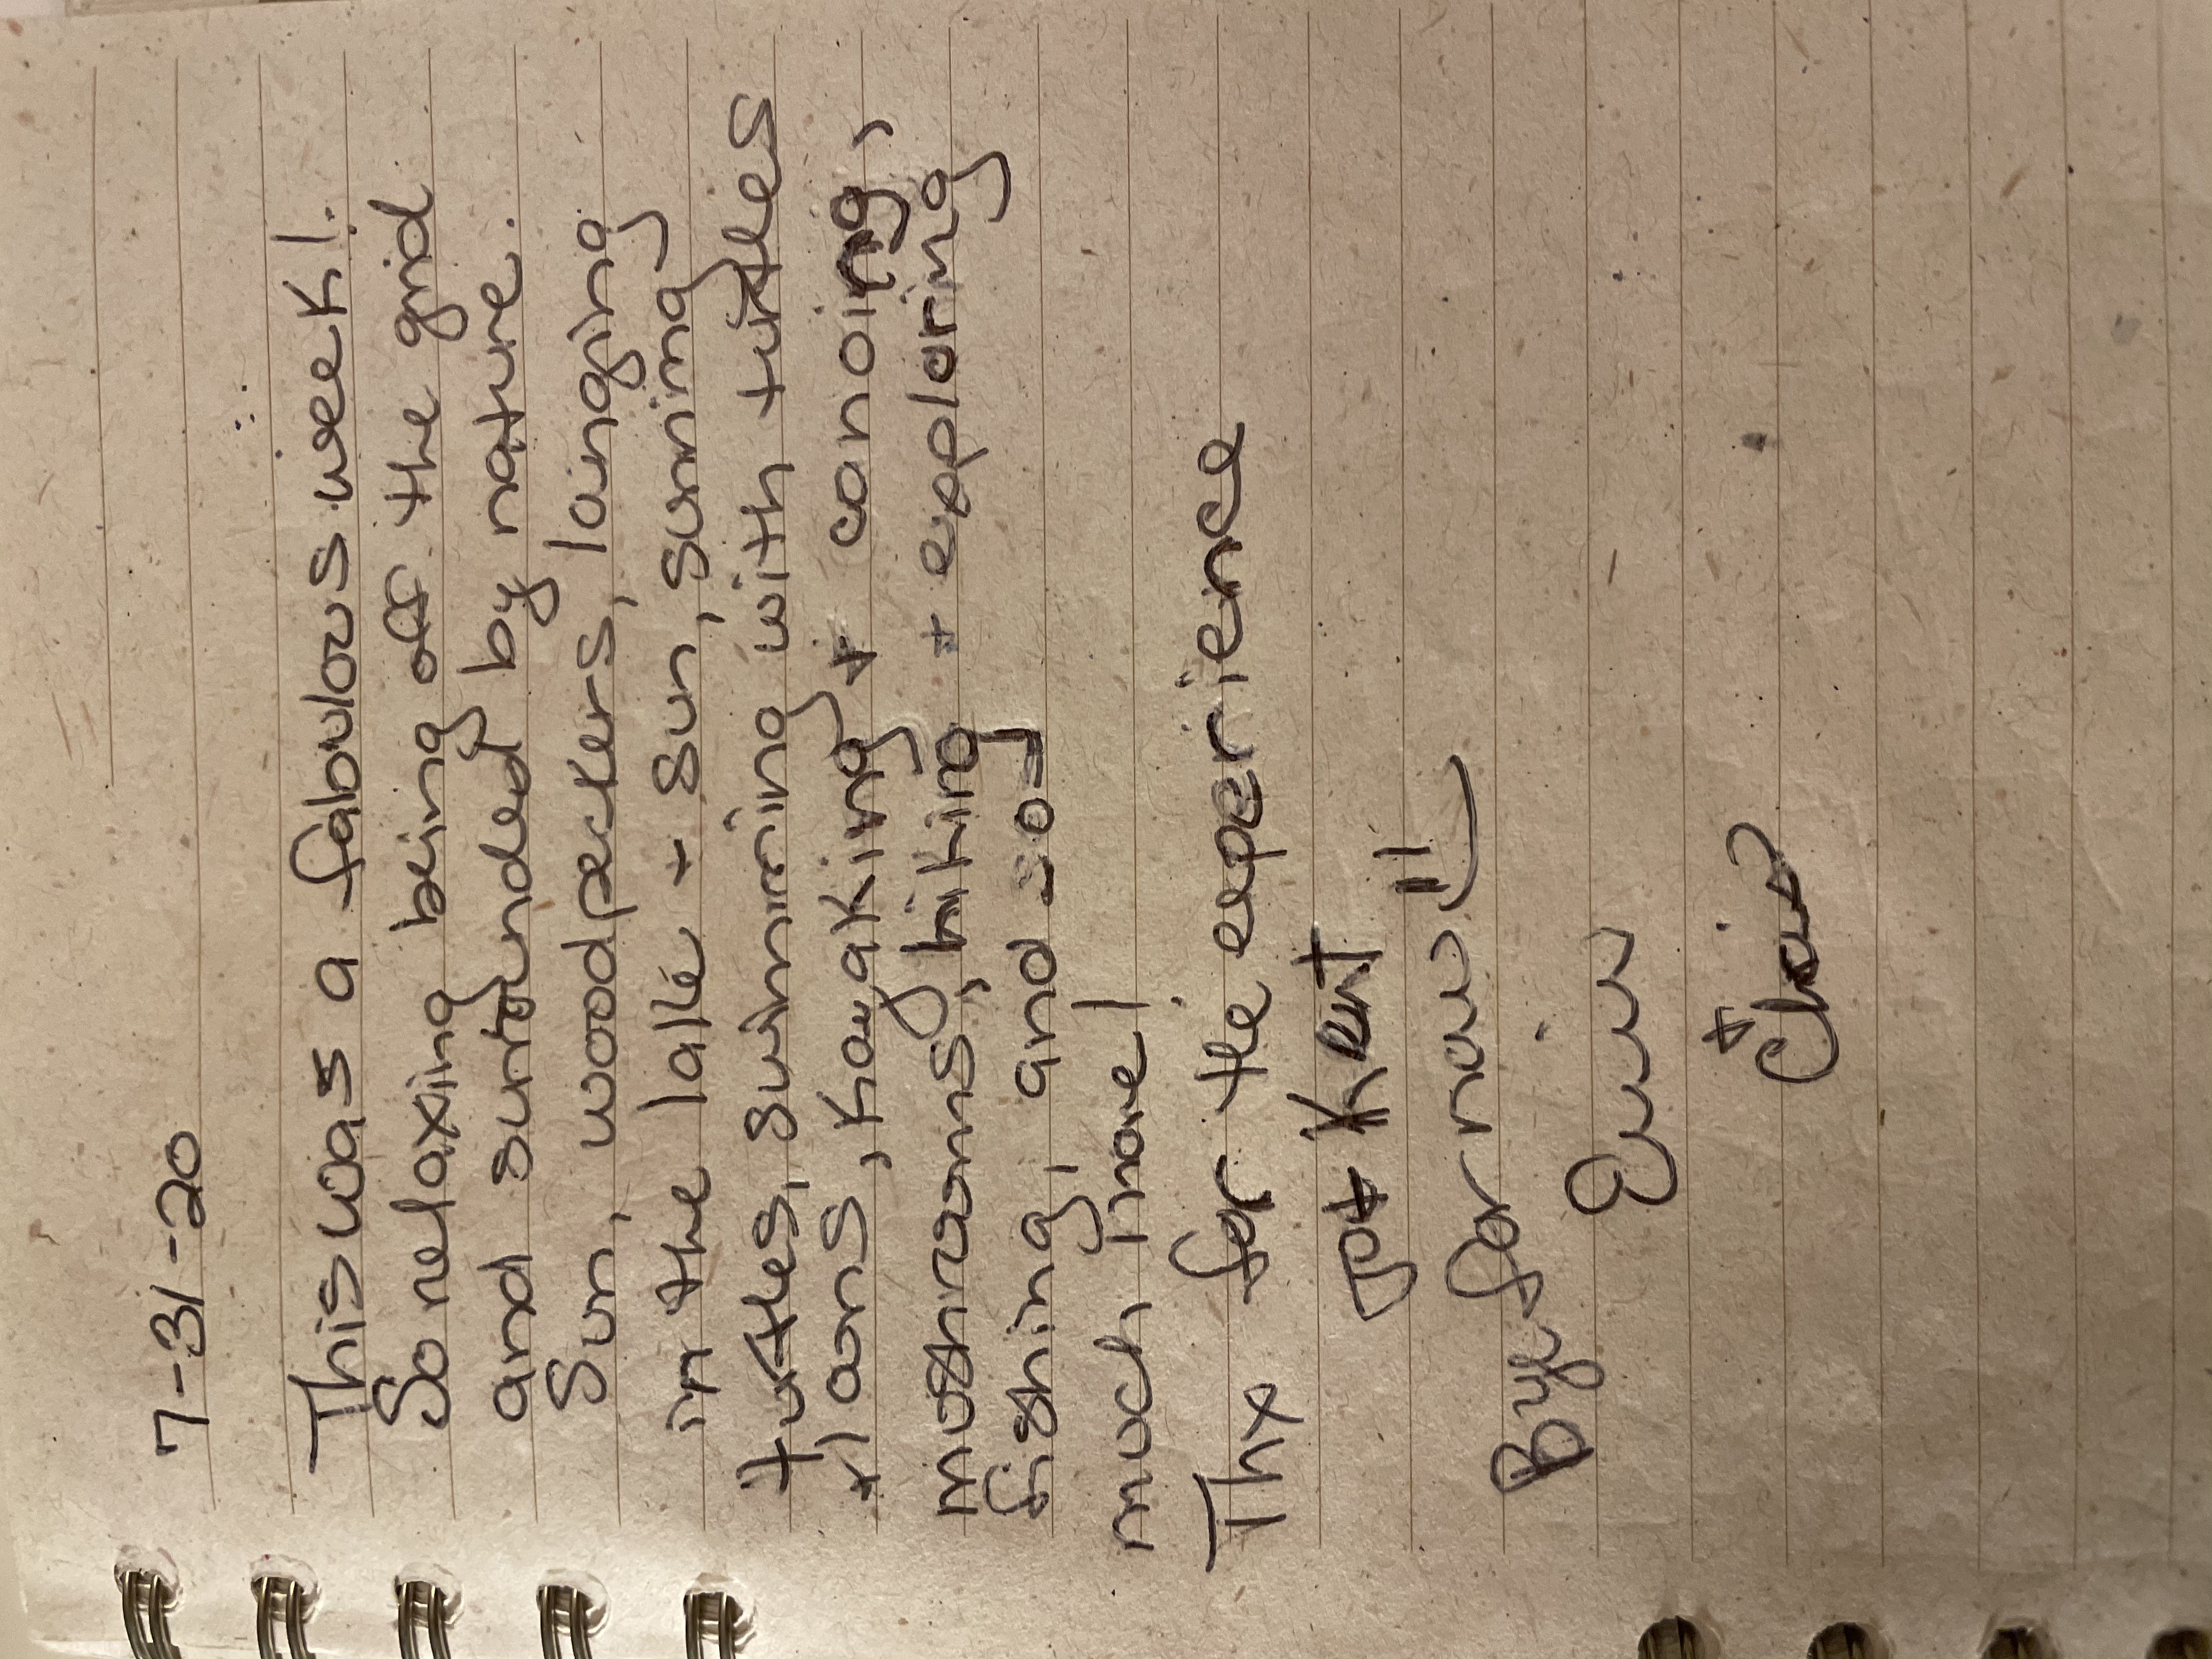 7-31-20
This was a fabulous week!
So relaxing being off the grid
and surrounded by nature.
Sun, woodpeckers, lounging
in the lake + sun, sunning
turtles, swimming with turtles
+ loons, kayaking + canoing,
mushrooms, hiking + exploring
fishing, and
much more!
Thx for the experience
Pat + Kent
Bye for now
+ Chris